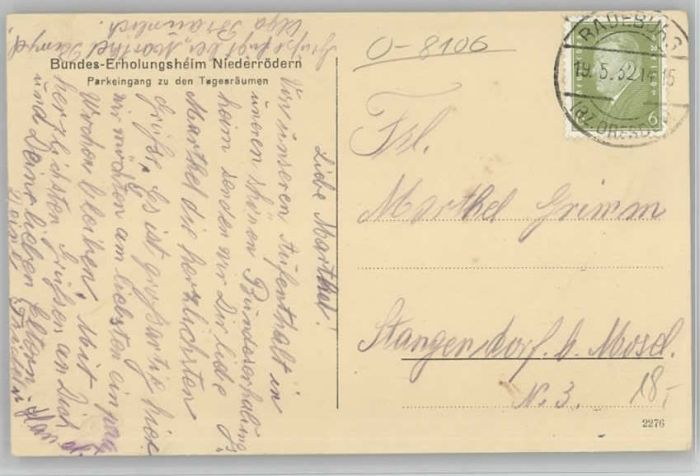 Bundes-Erholungsheim Niederrödern
Parkeingang zu den Tagesräumen
Liebe Marthel!
Von unseren Aufenthalt in
unseren schönen Bundeserholungs
heim senden wir Dir liebe
Marthel die herzlichsten
Grüße. Es ist großartig hier
wir möchten am liebsten ein paar
Wochen bleiben. Mit
herzlichsten Grüßen an Dich
und Deine lieben Eltern
Olga
O-8106
RADEBURG
19.5.32 14-15
(BZ. DRESDEN)
6
Frl.
Marthel Grimm
Stangendorf b. Mosel.
N. 3.
18,-
2276